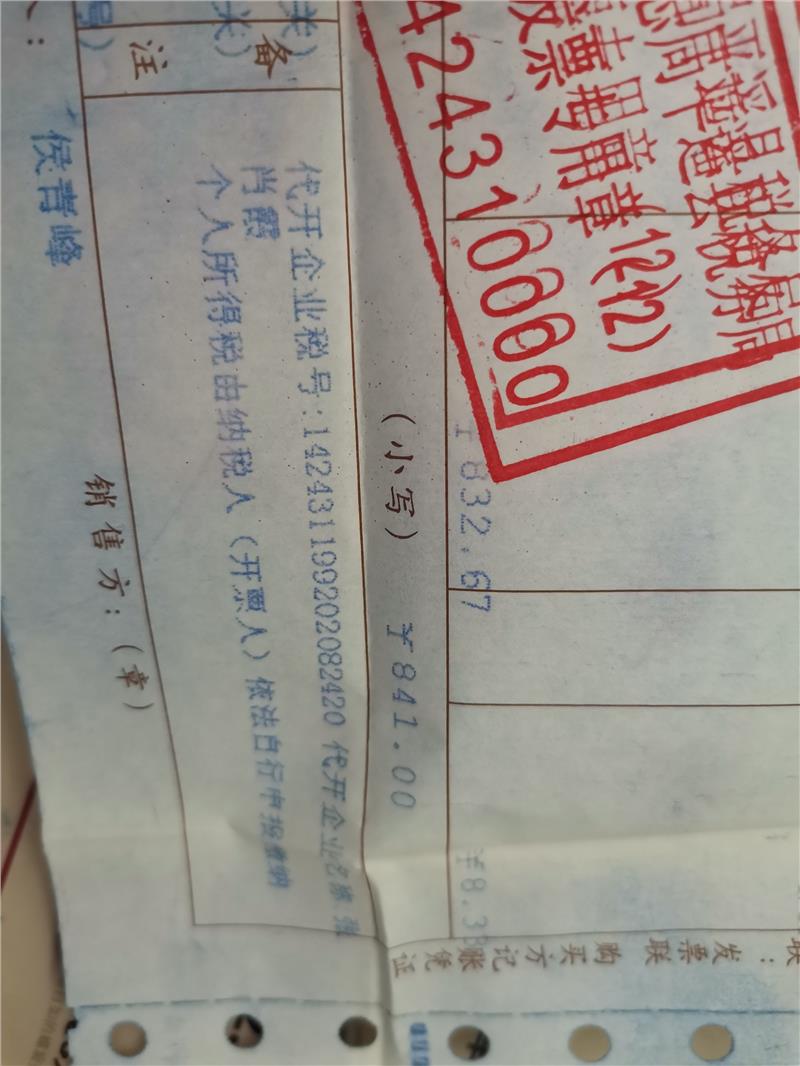 ¥832.67 ¥8.33
(小写) ¥841.00
备注
代开企业税号:142431199202082420 代开企业名称:张
个人所得税由纳税人(开票人)依法自行申报缴纳
侯青峰 销售方:(章)
联:发票联 购买方记账凭证
发票专用章